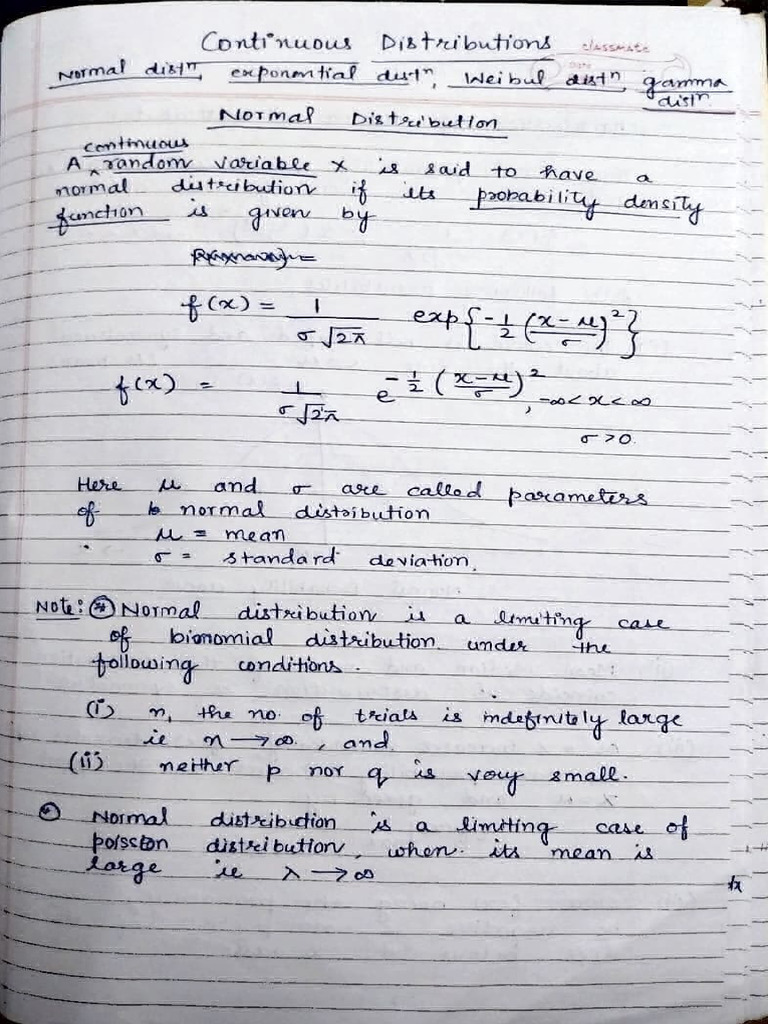 Continuous Distributions
classmate
Normal distⁿ, exponential distⁿ, Weibul distⁿ, gamma distⁿ
Normal Distribution
continuous
A ^ random variable x is said to have a
normal distribution if its probability density
function is given by
f(x) = 1/(σ√2π) exp{-1/2 ((x-μ)/σ)²}
f(x) = 1/(σ√2π) e^{-1/2 ((x-μ)/σ)²}, -∞<x<∞
σ>0.
Here μ and σ are called parameters
of normal distoibution
μ = mean
σ = standard deviation.
Note: * Normal distribution is a limiting case
of bionomial distribution under the
following conditions.
(i) n, the no. of trials is indefinitely large
ie n → ∞, and
(ii) neither p nor q is very small.
* Normal distribution is a limiting case of
poission distribution, when its mean is
large ie λ → ∞